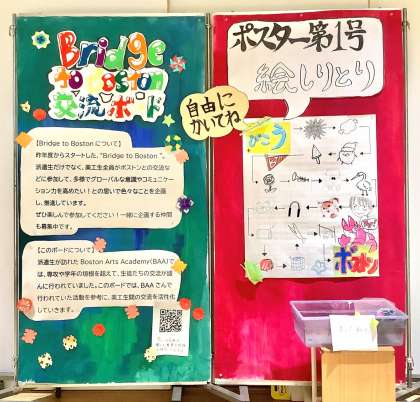 Bridge
to Boston
交流ボード
【Bridge to Bostonについて】
昨年度からスタートした、"Bridge to Boston"。
派遣生だけでなく、美工生全員がボストンとの交流な
どに参加して、多様でグローバルな意識やコミュニケー
ション力を高めたい！との思いで色々なことを企画
し、推進しています。
ぜひ楽しんで参加してください！一緒に企画する仲間
も募集中です。
【このボードについて】
派遣生が訪れた Boston Arts Academy(BAA)で
は、専攻や学年の垣根を超えて、生徒たちの交流が盛
んに行われていました。このボードでは、BAAさんで
行われていた活動を参考に、美工生間の交流を活性化
していきます。
自由に
かいてね
ポスター第1号
絵しりとり
ボストン